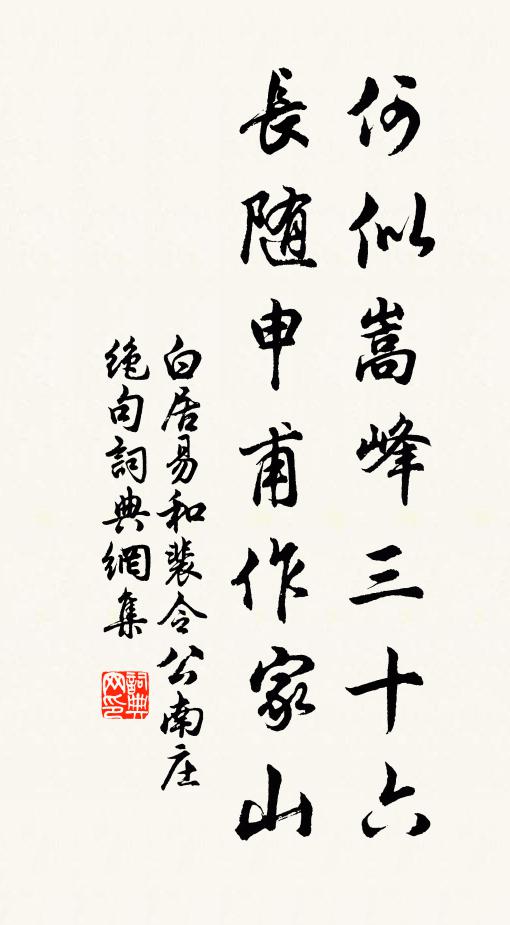 何似嵩峰三十六
長随申甫作家山
白居易和裴令公南庄
绝句詞典網集
詞典
网印